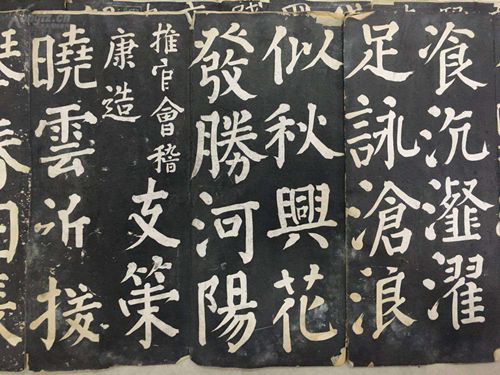 飡沆瀣濯
足詠滄浪
似秋興花
發勝河陽
推官會稽
康造
支策
曉雲近接